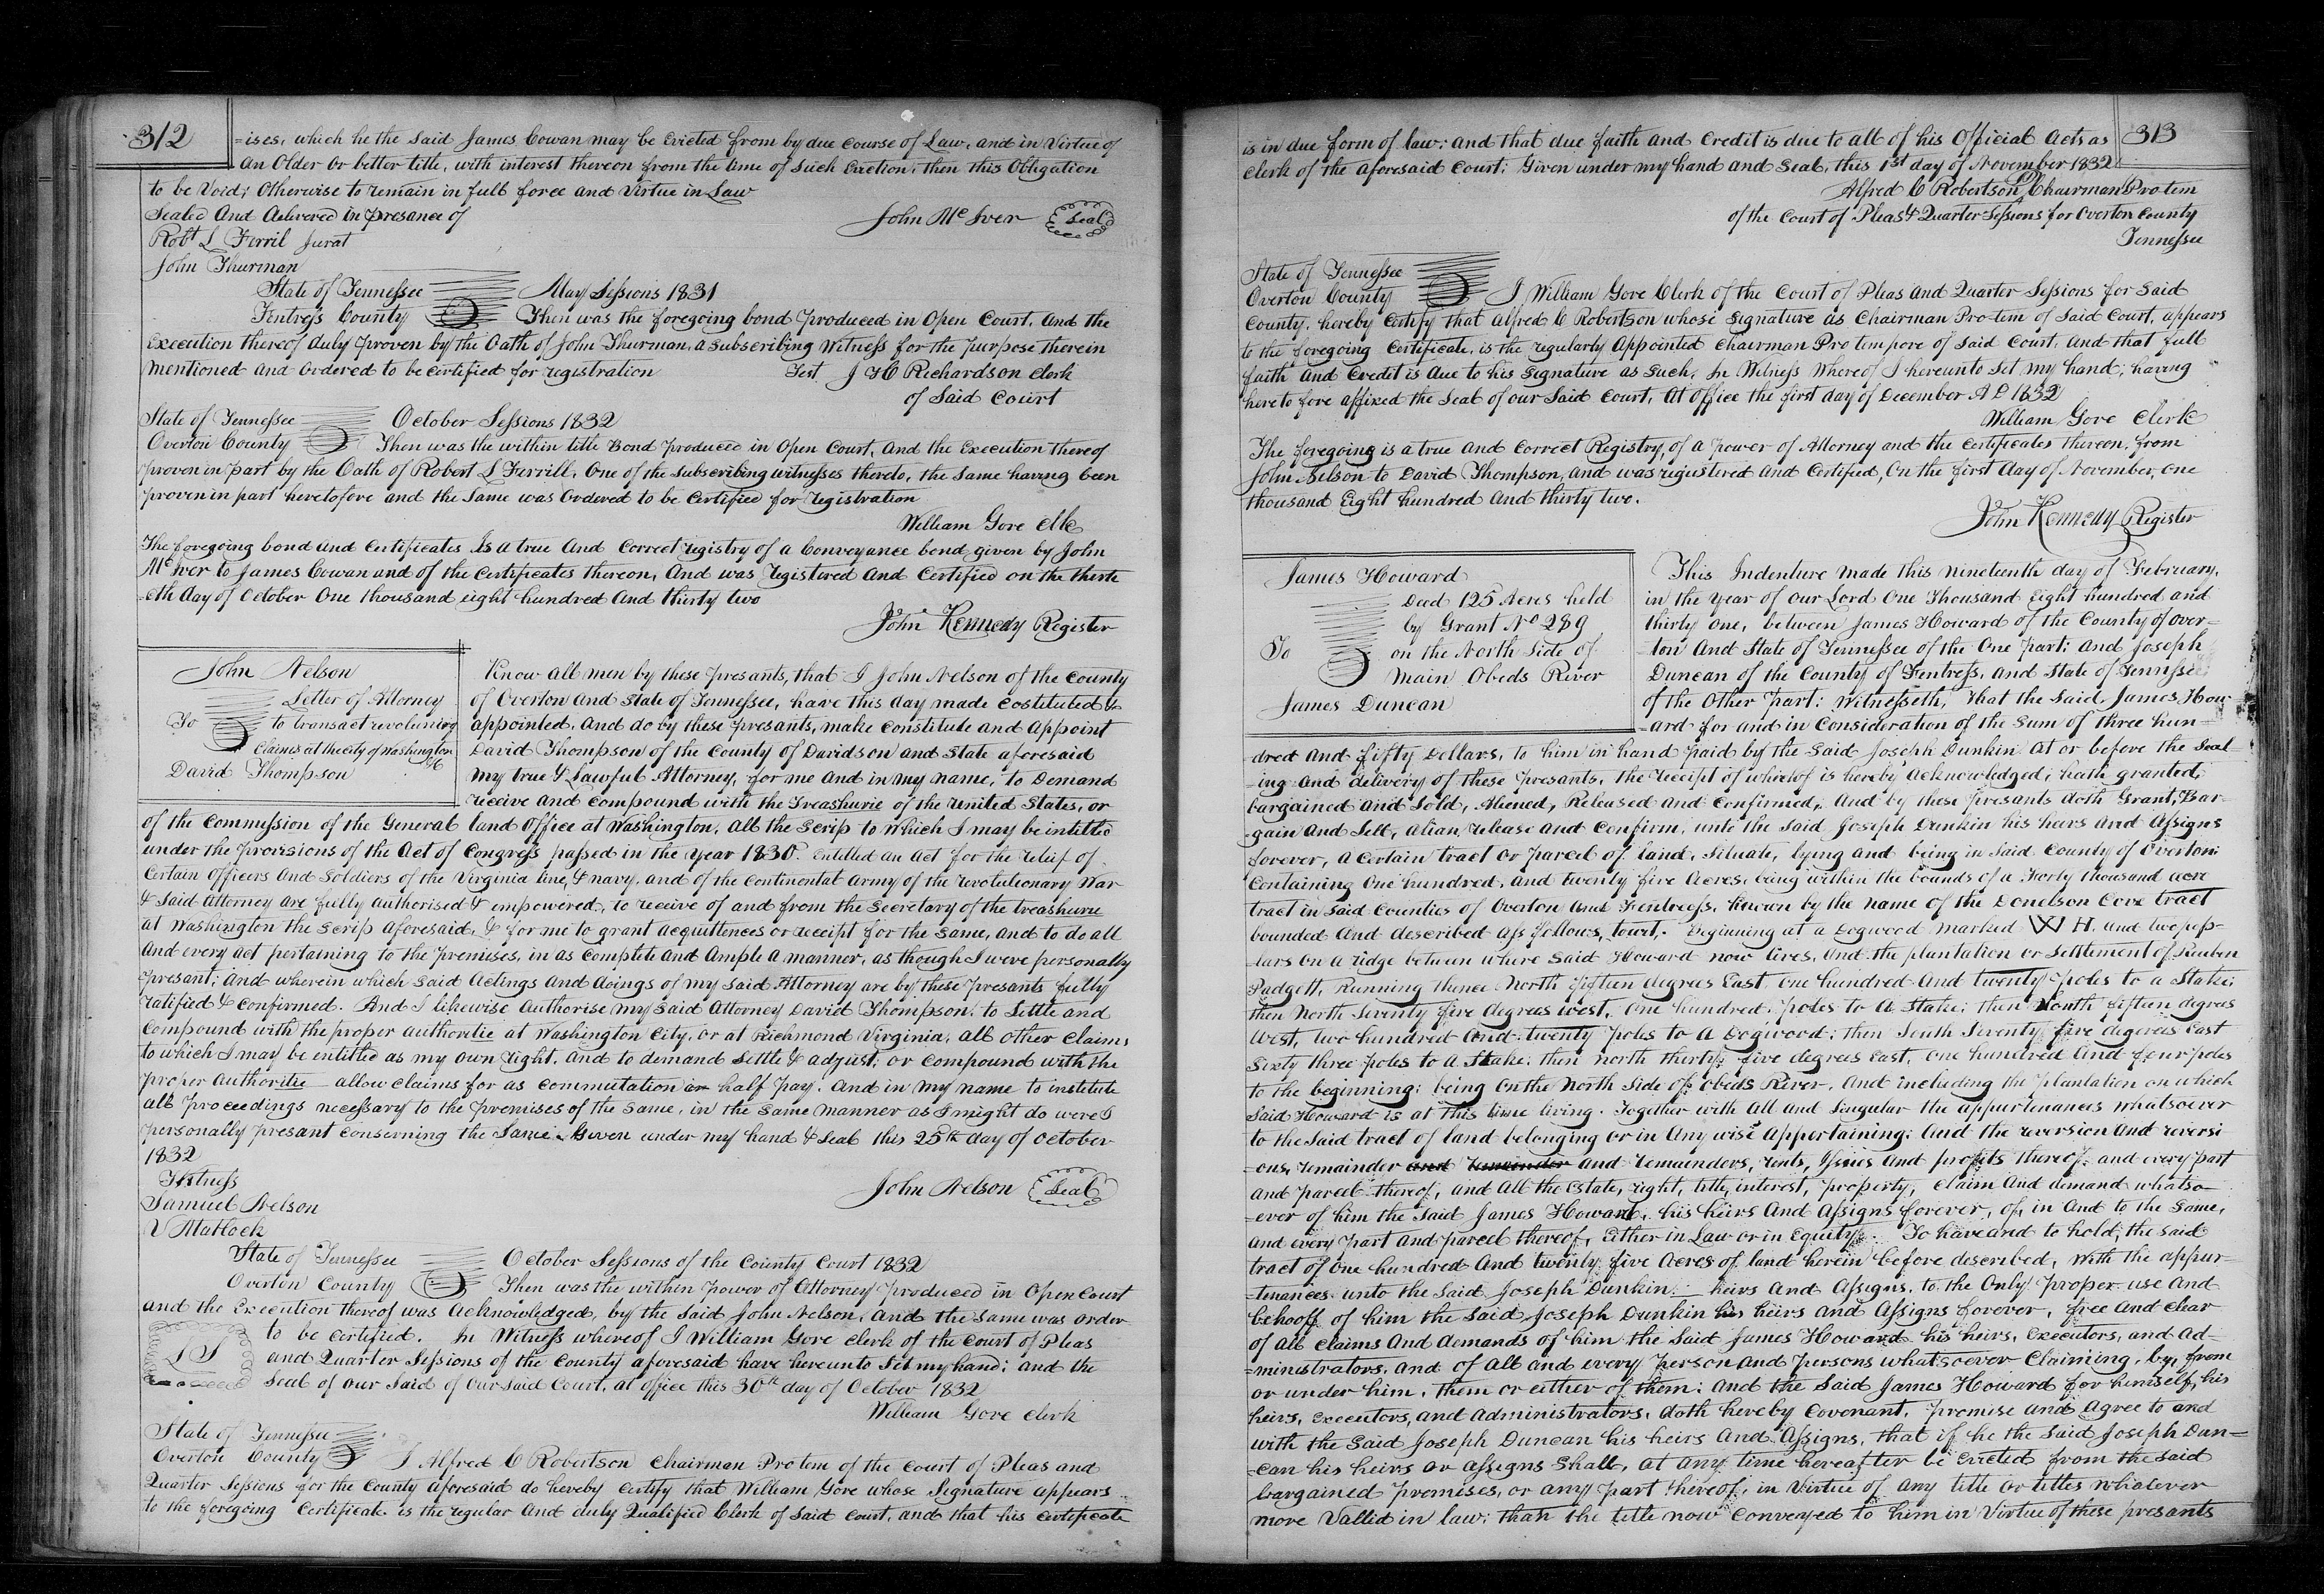 312
=ises, which he the said James Cowan may be Evicted from by due course of Law, and in Virtue of
an Older or better title, with interest thereon from the time of Such Eviction, then this Obligation
to be Void; Otherwise to remain in full force and Virtue in Law
Sealed And delivered in presance of
John McIver Seal
Robt L Ferril Jurat
John Thurman
State of Tennessee May Sessions 1831
Fentress County Then was the foregoing bond produced in Open Court. And the
Execution thereof duly proven by the Oath of John Thurman, a subscribing Witness for the purpose therein
mentioned and ordered to be certified for registration Test J H Richardson Clerk
of Said Court
State of Tennessee October Sessions 1832
Overton County Then was the within title Bond produced in Open Court, And the Execution thereof
proven in part by the Oath of Robert L Ferrill, One of the subscribing witnesses thereto, the same having been
proven in part heretofore and the Same was Ordered to be Certified for registration
William Gore Clk
The foregoing bond and Certificates is a true and correct registry of a Conveyance bond given by John
McIver to James Cowan and of the certificates thereon, And was registered and certified on the thirte
=eth day of October One thousand eight hundred And thirty two
John Kennedy Register
John Nelson
Letter of Attorney
To to transact revolusing
Claims at the city of Washington
David Thompson
Know all men by these presants, that I John Nelson of the County
of Overton and State of Tennessee, have this day made costituted &
appointed, and do by these presants, make Constitute and Appoint
David Thompson of the County of Davidson and State aforesaid
my true & Lawful Attorney, for me and in my name, to Demand
receive and Compound with the Treashurie of the United States, or
of the Commission of the General land Office at Washington, all the Scrip to which I may be intitled
under the provisions of the Act of Congress passed in the year 1830. entitled an act for the relief of
Certain Officers and Soldiers of the Virginia line, & navy, and of the Continental army of the revolutionary War
& Said Attorney are fully authorised & empowered, to receive of and from the Secretary of the treashurie
at Washington the Scrip aforesaid, & for me to grant acquittences or receipt for the same, and to do all
and every act pertaining to the premises, in as complete and Ample a manner, as though I were personally
presant; and wherein which said Actings and doings of my said Attorney are by these presants fully
ratified & confirmed. And I likewise authorise my said Attorney David Thompson, to Settle and
Compound with the proper authoritie at Washington City, or at Richmond Virginia, all other Claims
to which I may be entitled as my own right, and to demand Settle & adjust, or compound with the
proper authoritie allow claims for as commutation or half pay. And in my name to institute
all proceedings necessary to the premises of the same, in the same manner as I might do were I
personally presant conserning the Same. Given under my hand & seal this 25th day of October
1832
Witness
John Nelson Seal
Samuel Nelson
V Matlock
State of Tennessee October Sessions of the County Court 1832
Overton County Then was the within power of Attorney produced in Open Court
and the Execution thereof was Acknowledged, by the said John Nelson, and the same was order
to be certified. In Witness whereof I William Gore clerk of the Court of Pleas
LS and Quarter Sessions of the County aforesaid have hereunto set my hand; and the
Seal of our Said of Our said Court, at office this 30th day of October 1832
William Gore Clerk
State of Tennessee
Overton County I Alfred C Robertson Chairman Protem of the Court of Pleas and
Quarter Sessions for the County aforesaid do hereby certify that William Gore whose Signature appears
to the foregoing Certificate is the regular and duly Qualified Clerk of Said Court, and that his certificate
313
is in due form of law; and that due faith and Credit is due to all of his Official Acts as
Clerk of the aforesaid Court; Given under my hand and Seal, this 1st day of November 1832
Alfred C Robertson, Chairman Protem
of the Court of Pleas & Quarter Sessions for Overton County
Tennessee
State of Tennessee
Overton County I William Gore Clerk of the Court of Pleas and Quarter Sessions for said
County, hereby certify that Alfred C Robertson whose signature as Chairman Pro-tem of Said Court, appears
to the foregoing Certificate, is the regularly Appointed Chairman Protempore of Said Court, and that full
faith and Credit is due to his signature as Such, In Witness Whereof I hereunto Set my hand; having
heretofore affixed the Seal of our Said Court, At Office the first day of December A D 1832
William Gore Clerk
The foregoing is a true and correct Registry, of a power of Attorney and the certificates thereon, from
John Nelson to David Thompson, and was registered and Certified, On the first day of November, One
thousand Eight hundred and thirty two.
John Kennedy Register
James Howard
Deed 125 Acres held
by Grant No 289
To on the North Side of
Main Obeds River
James Duncan
This Indenture made this nineteenth day of February,
in the year of our Lord One Thousand Eight hundred and
thirty One, between James Howard of the County of Over=
=ton And State of Tennessee of the One part; and Joseph
Duncan of the County of Fentress, and State of Tennsse
of the Other part; Witnesseth, That the Said, James How
=ard for and in Consideration of the sum of three hun=
=dred and fifty Dollars, to him in hand paid by the said Joseph Dunkin at or before the Seal=
=ing and delivery of these presants, the receipt of whereof is hereby acknowledged; hath granted,
bargained and sold, Aliened, Released and Confirmed, And by these presants doth Grant, Bar=
=gain and Sell, alian, release and Confirm, unto the said Joseph Dunkin his heirs and Assigns
forever, a certain tract or parcel of land, Situate, lying and being in said County of Overton
Containing One hundred, and twenty five Acres, being within the bounds of a Forty thousand acre
tract in Said Counties of Overton and Fentress, Known by the name of the Donelson Cove tract
bounded and described ass follows, towit, Beginning at a Dogwood marked W H. and two pop=
=lars on a ridge between where said Howard now lives, and the plantation or settlement of Reuben
Padgett, Running thence North fifteen degrees East, one hundred And twenty poles to a Stake;
then North Seventy five degrees west, One hundred poles to a Stake; then North fifteen degrees
West, two hundred and twenty poles to a Dogwood; then South Seventy five degrees East
Sixty three poles to a Stake; then north thirty five degrees East, one hundred and four poles
to the beginning; being on the North Side of Obeds River, and including the plantation on which
Said Howard is at this time living. Together with all and Singular the appurtenances whatsoever
to the said tract of land belonging or in any wise appertaining; And the reversion and reversi
=ons, remainder and remainder and remainders, rents, Issues and profits thereof, and every part
and parcel thereof, and all the Estate, right, title, interest, property, claim and demand whatso=
=ever of him the said James Howard, his heirs And Assigns forever, of, in and to the same,
and every part and parcel thereof, Either in Law or in Equity. To have and to hold; the said
tract of one hundred And twenty five Acres of land herein before described, with the appur=
=tenances unto the Said Joseph Dunkin heirs and Assigns, to the Only proper use and
behooff of him the said, Joseph Dunkin his heirs and Assigns forever, free and clear
of all claims and demands of him the said James Howard his heirs, Executors, and ad=
=ministrators, and of all and every person and persons whatsoever claiming, by, from
or under him, them or either of them; and the said James Howard for himself, his
heirs, Executors, and administrators, doth hereby Covenant, promise and Agree to and
with the said Joseph Duncan his heirs And Assigns, that if he the said Joseph Dun=
=can his heirs or assigns shall, at any time hereafter be Evicted from the said
bargained premises, or any part thereof, in Virtue of any title or titles whatever
more Vallid in law; than the title now conveyed to him in Virtue of these presants